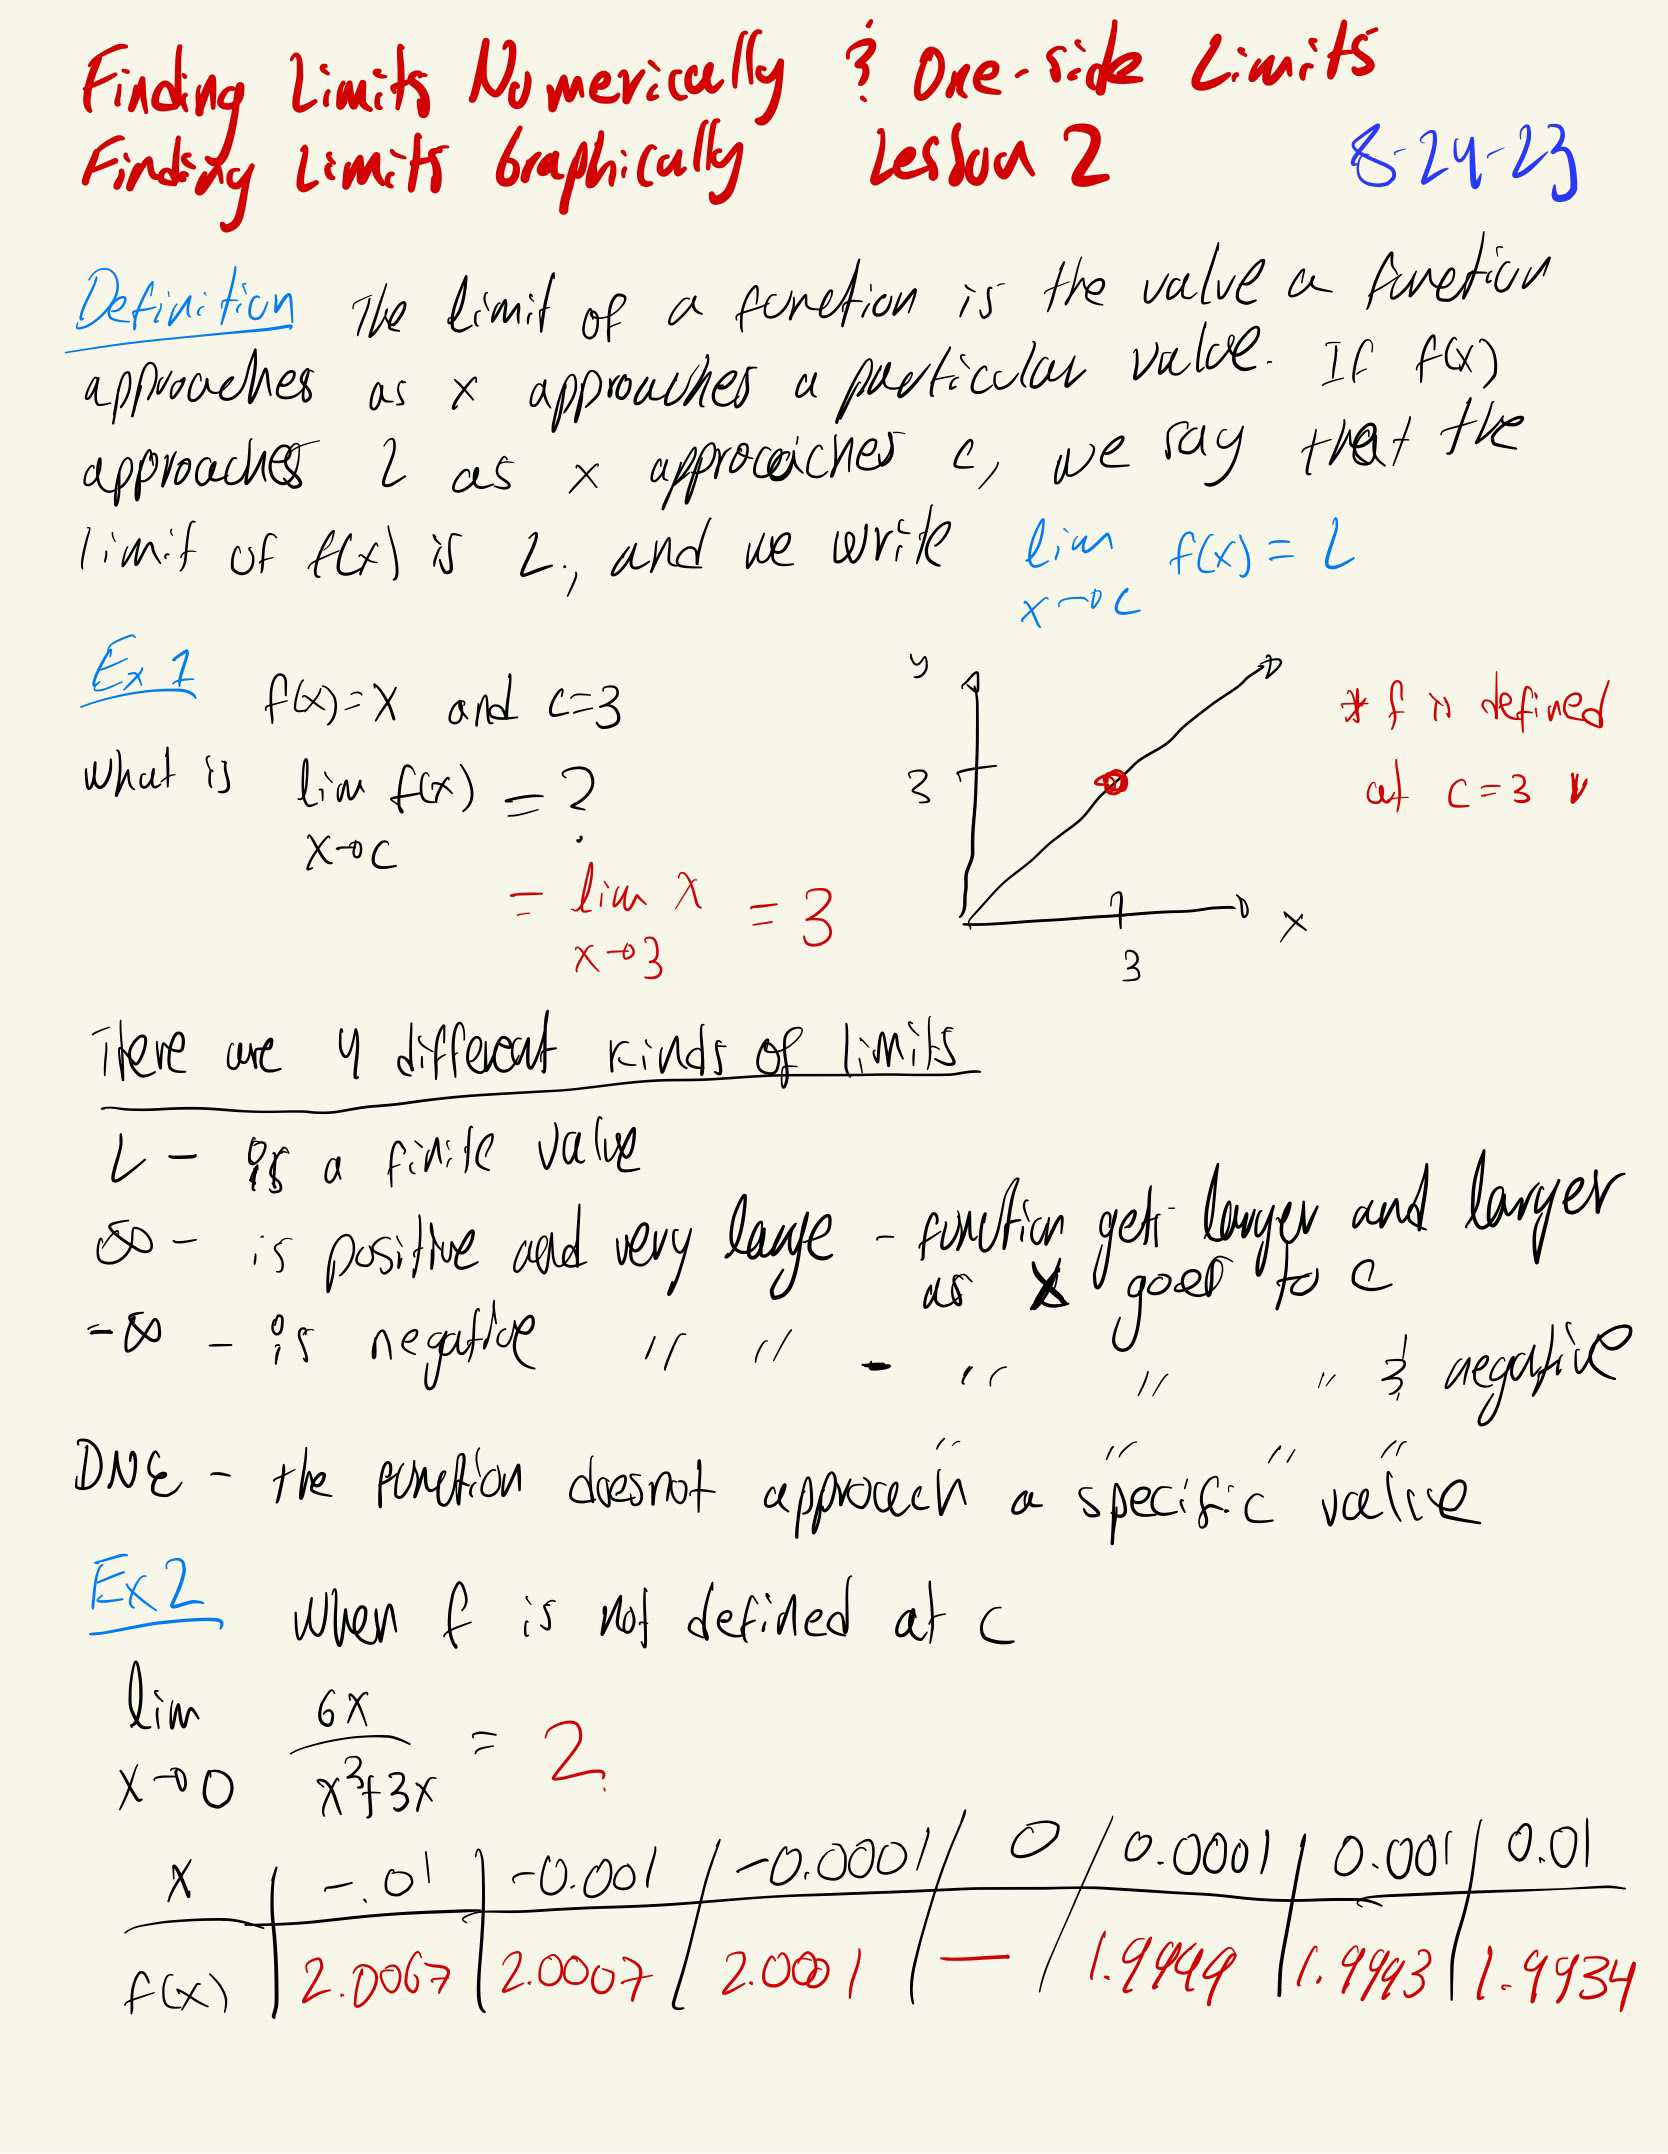 Finding Limits Numerically & One-side Limits
Finding Limits Graphically Lesson 2 8-24-23
Definition The limit of a function is the value a function
approaches as x approaches a particular value. If f(x)
approaches L as x approaches c, we say that the
limit of f(x) is L, and we write lim f(x) = L
x→c
Ex 1 f(x)=x and c=3
what is lim f(x) = ?
x→c
= lim x = 3
x→3
y
3
3
x
* f is defined
at c=3 ✓
There are 4 different kinds of limits
L - is a finite value
∞ - is positive and very large - function gets larger and larger
as x goes to c
-∞ - is negative " " - " " " & negative
" " " "
DNE - the function doesnot approach a specific value
Ex 2 when f is not defined at c
lim 6x = 2
x→0 x²+3x
x | -.01 | -0.001 | -0.0001 | 0 | 0.0001 | 0.001 | 0.01
f(x) | 2.0067 | 2.0007 | 2.0001 | — | 1.9999 | 1.9993 | 1.9934